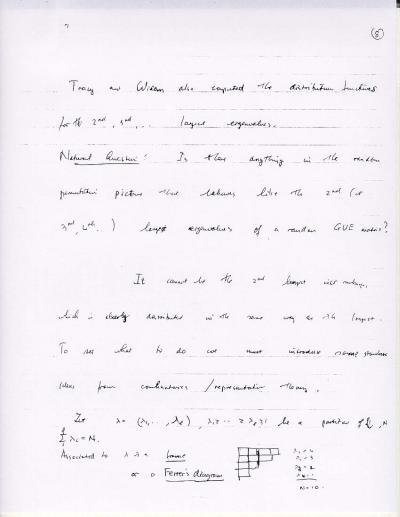 8
Tracy and Widom also computed the distribution functions
for the 2nd, 3rd, ... largest eigenvalues.
Natural Question: Is there anything in the random
permutation picture that behaves like the 2nd (or
3rd, 4th, ..) largest eigenvalues of a random GUE matrix?
It cannot be the 2nd longest incr subseq.
which is clearly distributed in the same way as the longest.
To see what to do we must introduce some standard
ideas from combinatorics / representation theory.
Let λ = (λ1, ..., λℓ), λ1 ≥ ... ≥ λℓ ≥ 1 be a partition of N
Σ λi = N.
Associated to λ is a frame
or a Ferrer's diagram
λ1 = 4
λ2 = 3
λ3 = 2
N = 10.